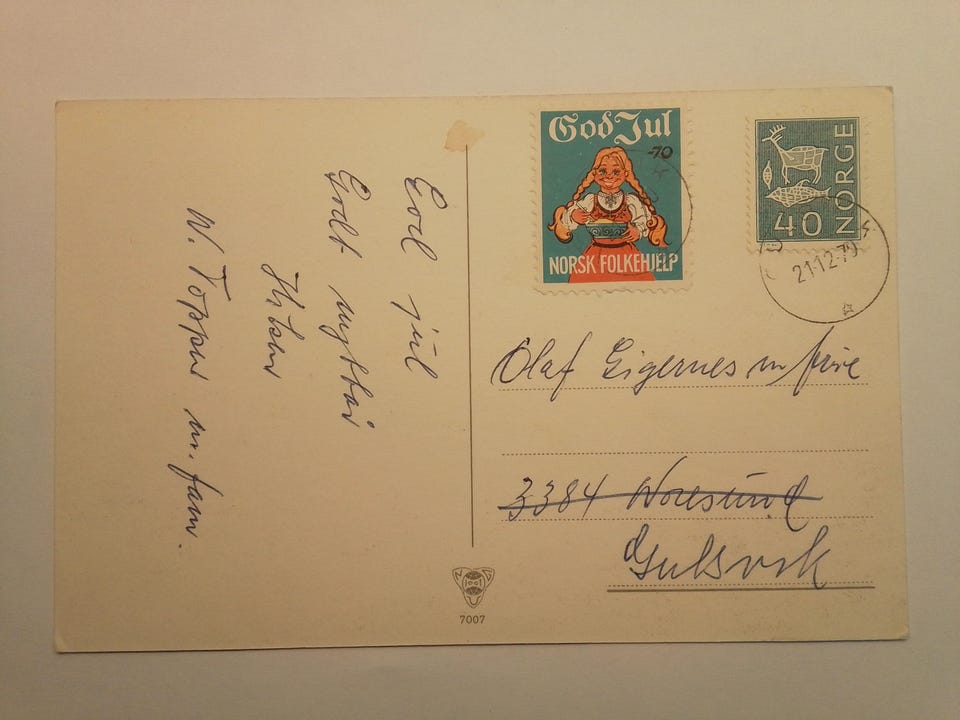 God jul
Godt nyttår
Hilsen
W. Toppen m. fam.
God Jul
-70
NORSK FOLKEHJELP
NORGE
40
21·12·70
Olaf Gigernes m frue
3384 Noresund
Gulsvik
7007